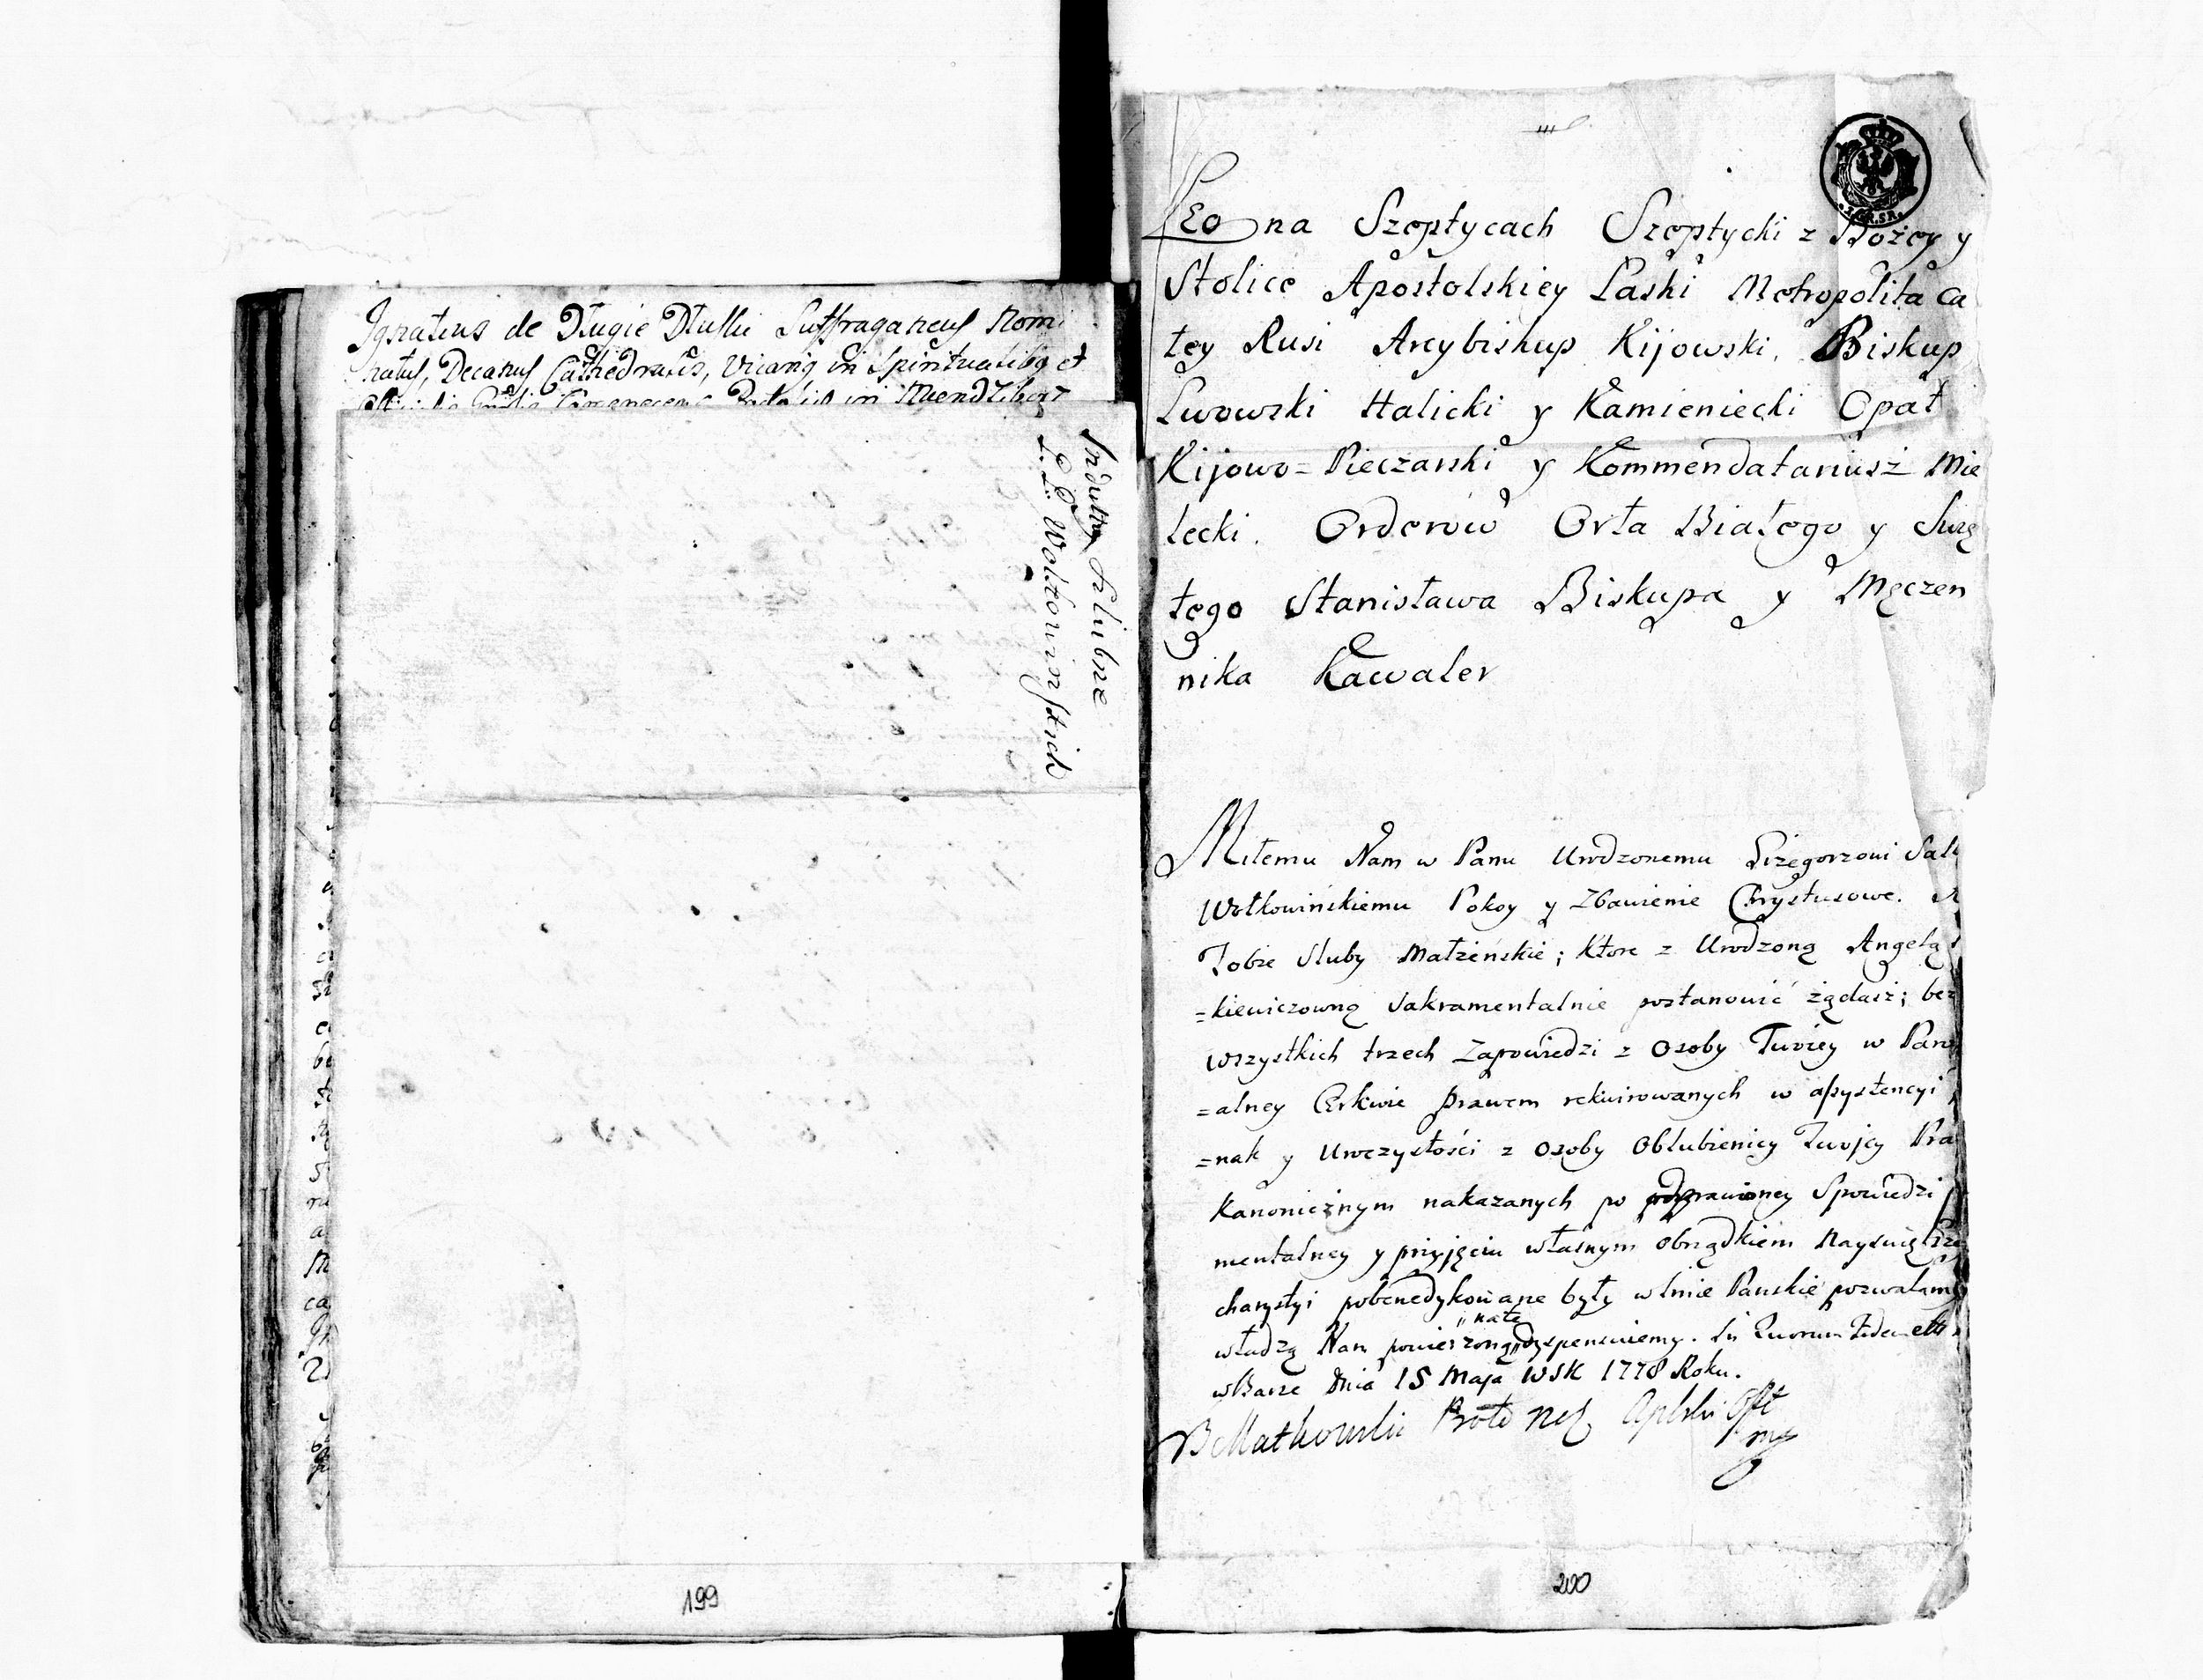 Ignatius de Długie Dłuski Suffraganeus Nomi
natus, Decanus Cathedralis, Vicarius in Spiritualibus et
Indulta Szlubne
Wołkowinskich
Leo na Szeptycach Szeptycki z Bożey y
Stolice Apostolskiey Łaski Metropolita Ca
łey Rusi Arcybiskup Kijowski, Biskup
Lwowski Halicki y Kamieniecki Opat
Kijowo=Pieczarski y Kommendatariusz Mie
lecki. Orderów Orła Białego y Swię
tego Stanisława Biskupa y Męczen
nika Kawaler
Miłemu Nam w Panu Urodzonemu Grzegorzowi
Wołkowińskiemu Pokoy y Zbawienie Chrystusowe.
Tobie sluby Małżeńskie; Ktore z Urodzoną Angelą
=kiewiczowną Sakramentalnie postanowić żądasz; bez
wszystkich trzech Zapowiedzi z Osoby Twoiey w
=alney Cerkwie prawem rekwirowanych w assystencyi
=nak y Uroczystości z Osoby Oblubienicy Twojey
Kanonicznym nakazanych po odprawioney Spowiedzi
mentalney y przyjęciu własnym obrządkiem
charystyi pobenedykowane były w Imie Panskie pozwalamy
władzą Nam powierzoną dyspensuiemy. In Quorum Fidem
w Barze Dnia 15 Maja WSK 1778 Roku.
BMatkowski
199
200